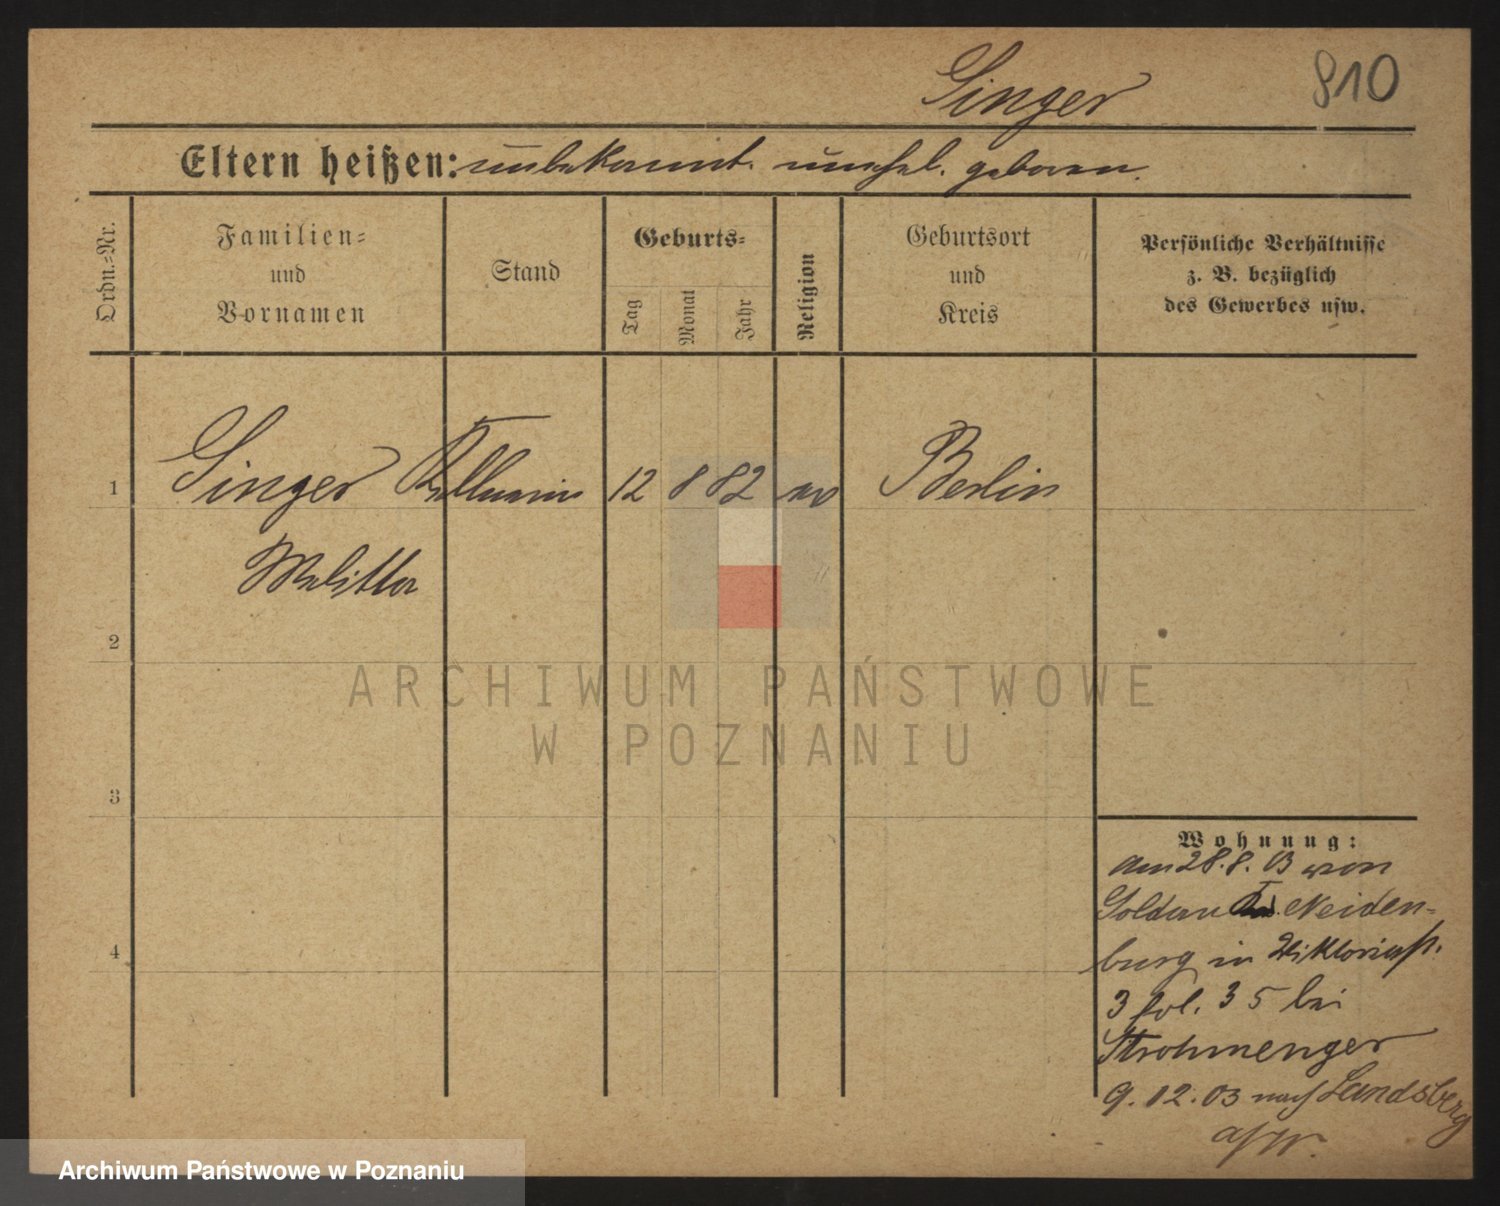 810
Singer
Eltern heißen: unbekannt. unehel. geboren.
Ordn.-Nr.
Familien- und Vornamen
Stand
Geburts-
Tag
Monat
Jahr
Religion
Geburtsort und Kreis
Persönliche Verhältnisse z. B. bezüglich des Gewerbes usw.
1 Singer Kellnerin 12 8 82 Berlin
Melitta
2
3
4
Wohnung:
am 28.8.03 von
Soldau Neiden-
burg in Viktoriast.
3 35 bei
Strohmenger
9.12.03 nach Landsberg
a/W.
ARCHIWUM PAŃSTWOWE
W POZNANIU
Archiwum Państwowe w Poznaniu